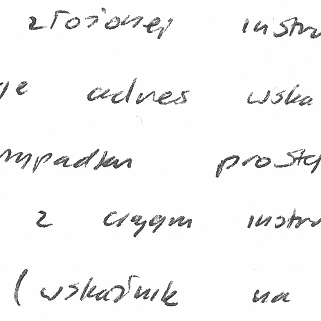 złożonej instru
je adres wska
rzypadku prostej
z ciągiem instru
(wskaźnik na